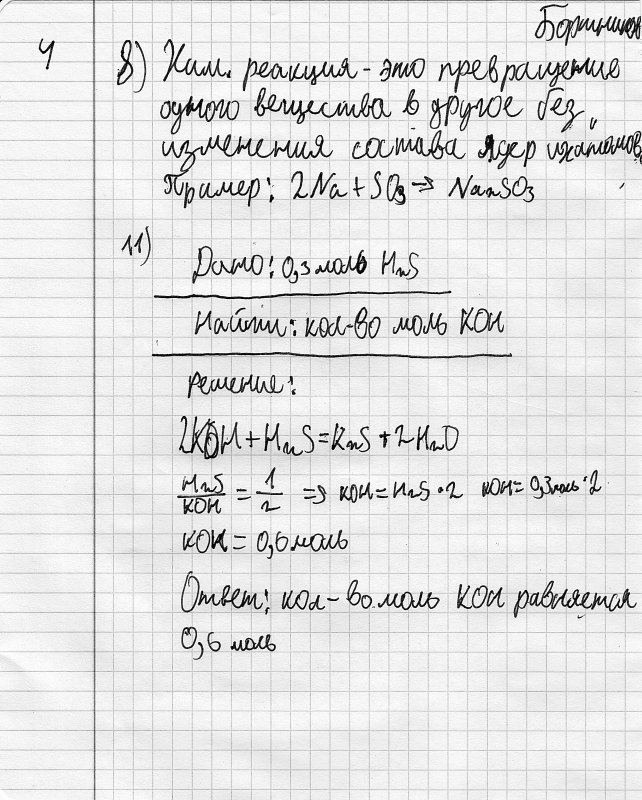 4
8) Хим. реакция - это превращение
одного вещества в другое без
изменения состава ядер их атомов.
Пример: 2Na + SO3 → Na2SO3
11)
Дано: 0,3 моль H2S
Найти: кол-во моль KOH
Решение:
2KOH + H2S = K2S + 2H2O
H2S/KOH = 1/2 => KOH = H2S · 2 KOH = 0,3 моль · 2
KOH = 0,6 моль
Ответ: кол-во моль KOH равняется
0,6 моль